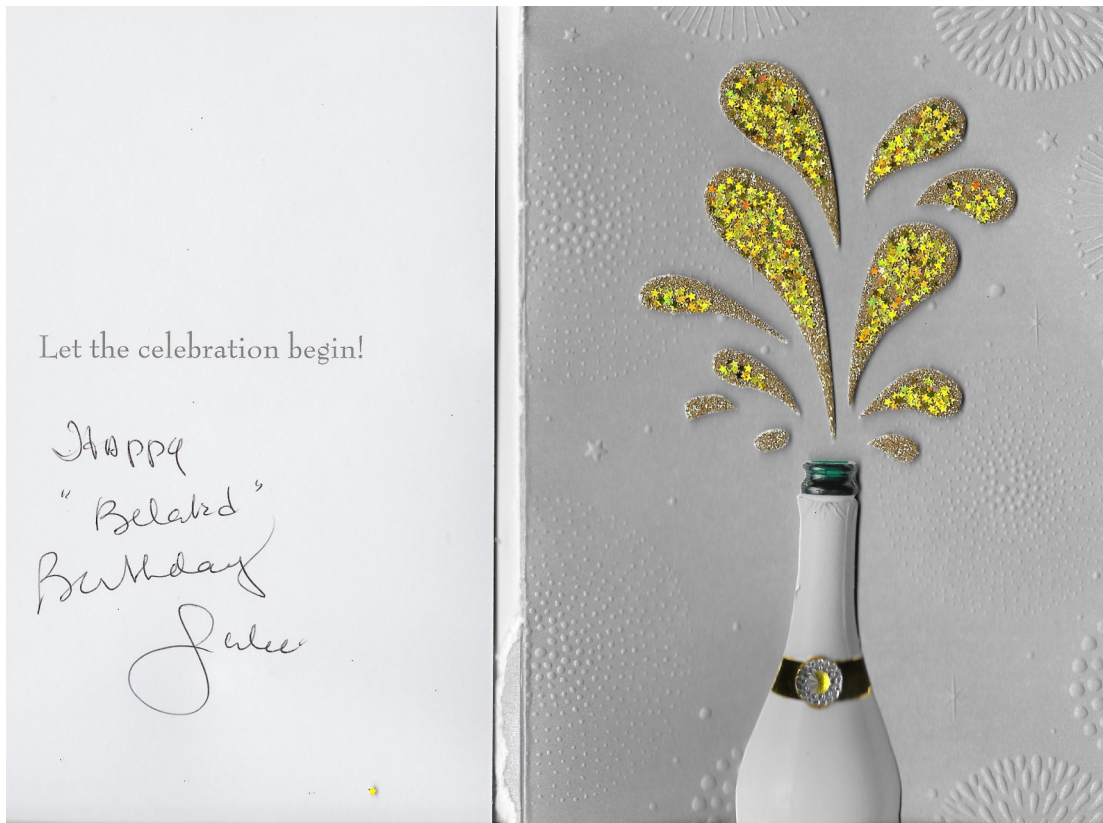 Let the celebration begin!
Happy
"Belated"
Birthday